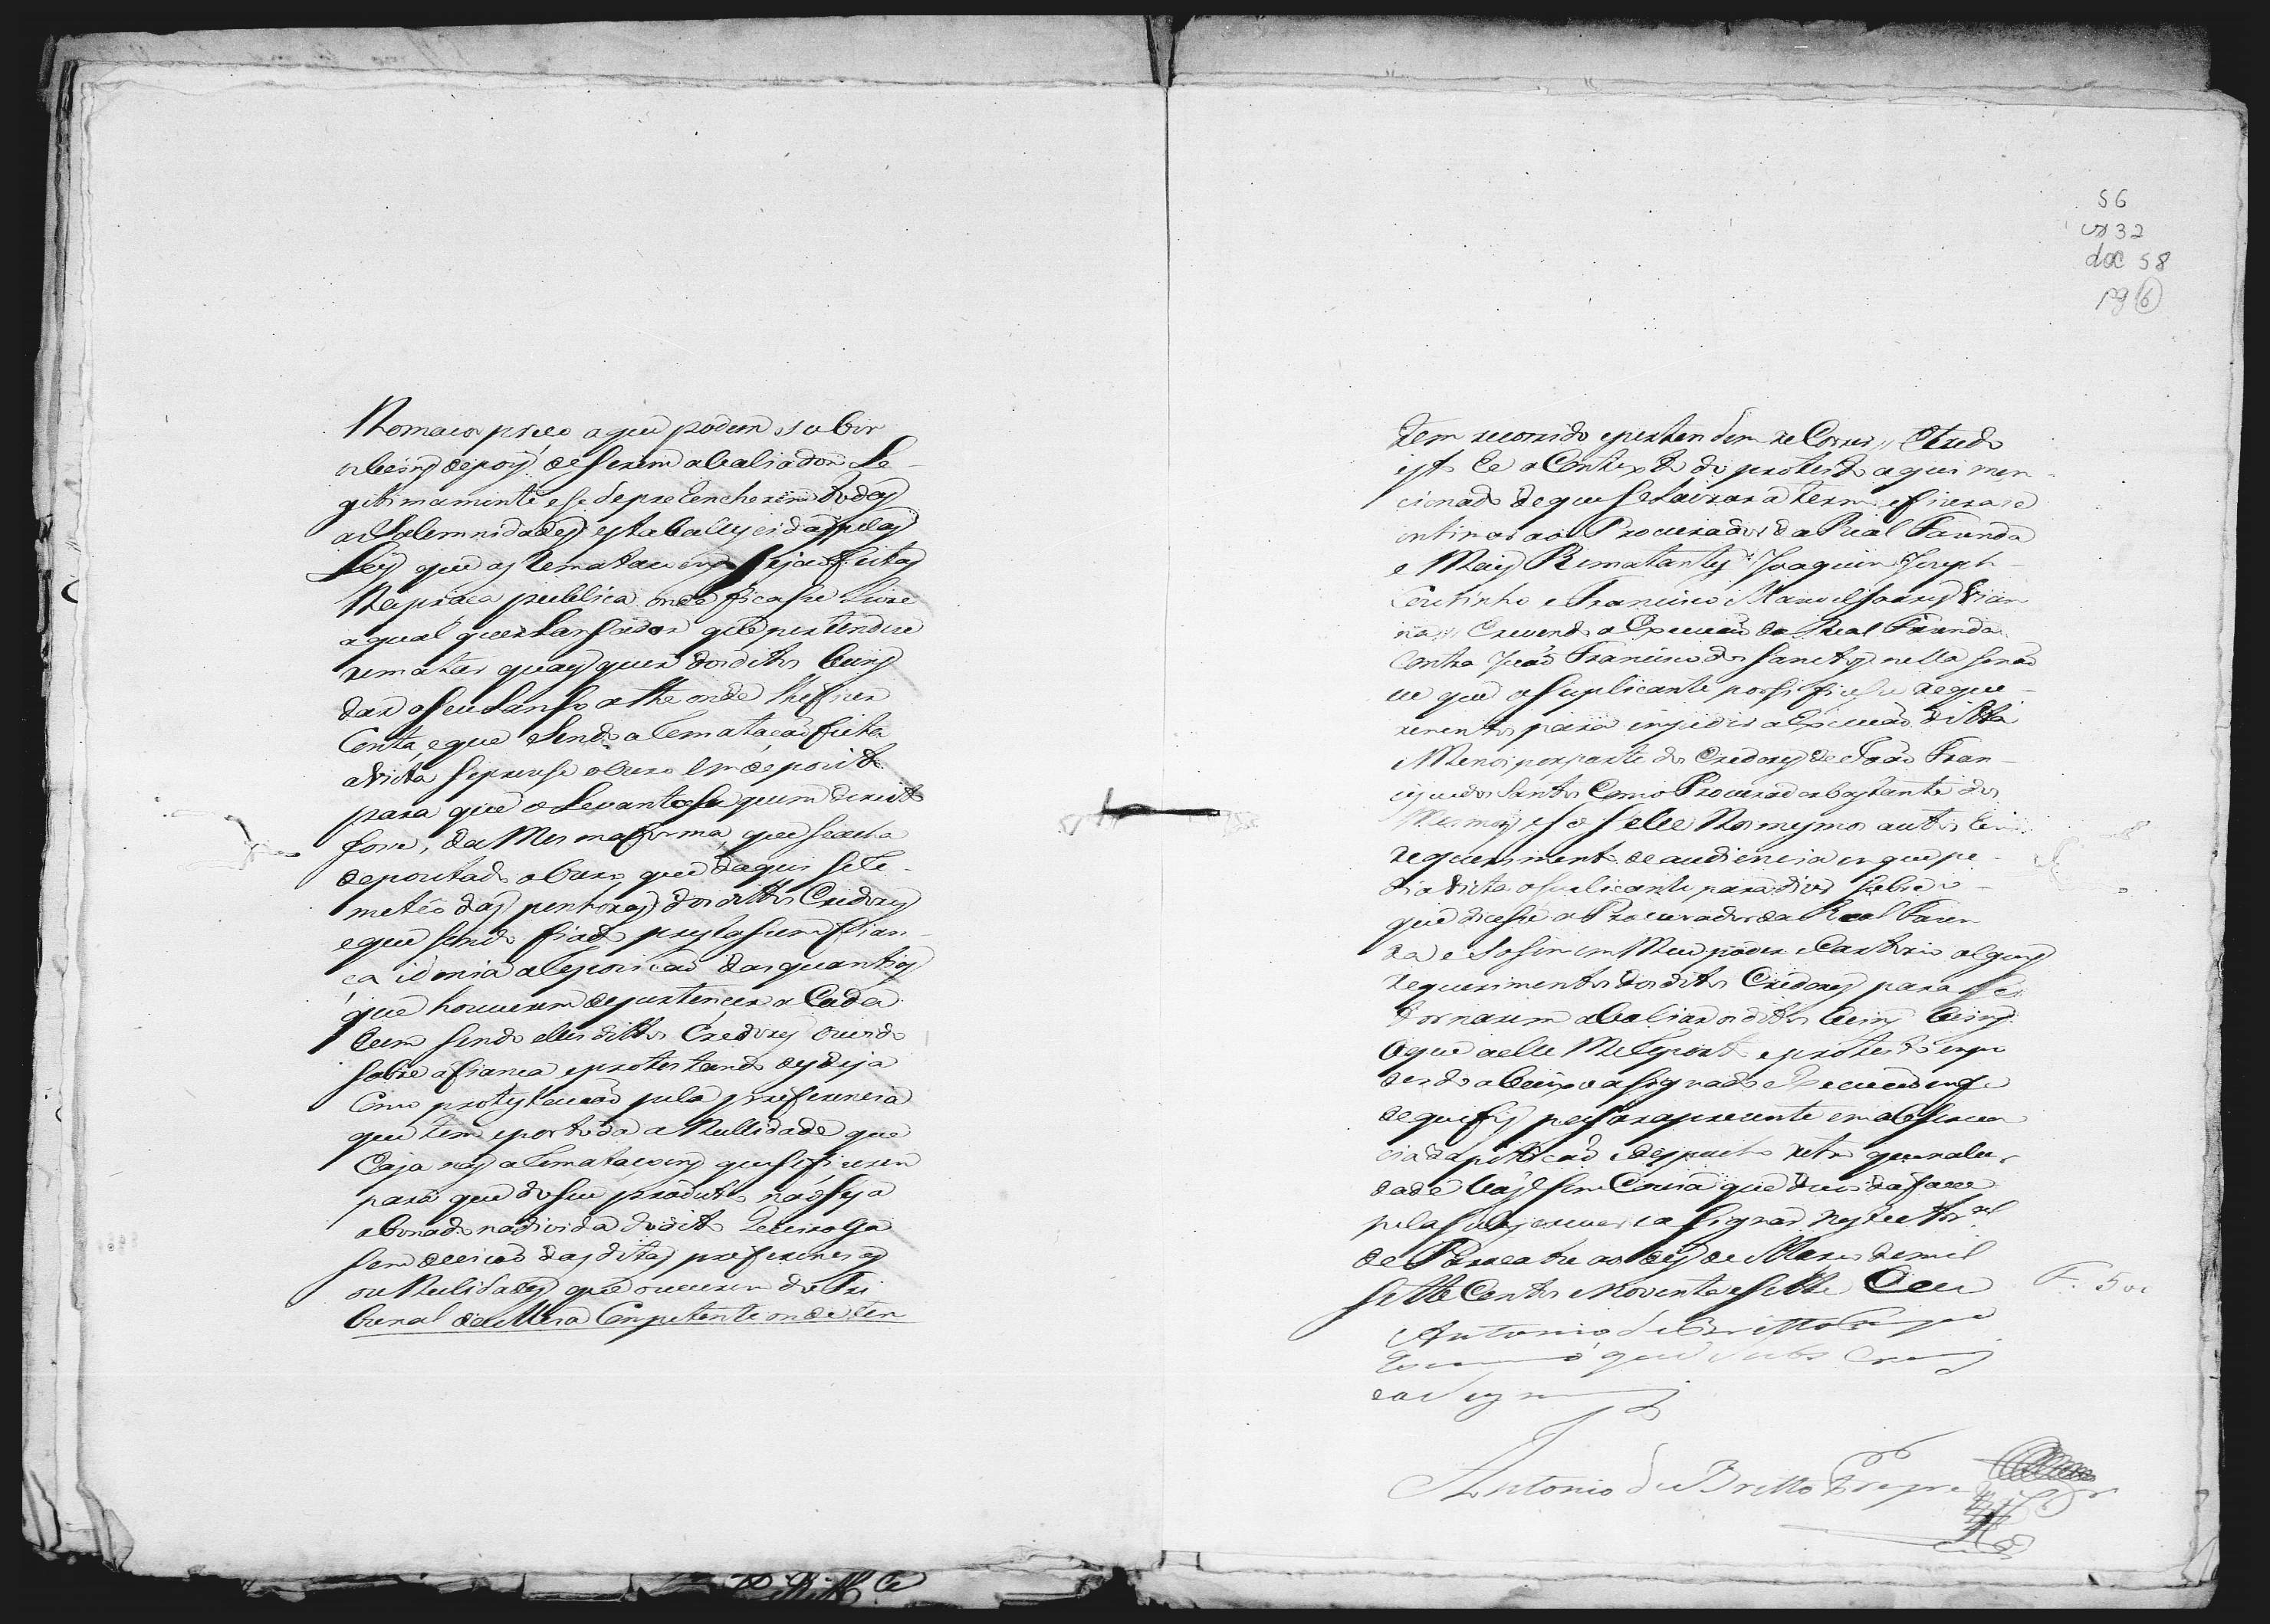 No maior preço a que podem subir
os beins depois de serem abaliados Le-
gitimamente e se depreencherem todas
as Solemnidades estaballecidas pelas
Leis que as Rematacoins sejão feitas
Na praça publica onde ficasse Livre
a qual quer Lansador que pertendese
rematar quaes quer dos ditos beins
dar o seu Lanso athe onde lhe fizer
Conta, e que Sendo a Rematação feita
a vista sepuzese o ouro em deposito
para que o Levantase quem direito
fose, da Mesma forma, que se acha
depozitado o ouro que daqui se Re-
meteo das penhoras dos dittos Credores
e que sendo fiado prestasem fian-
ca idonia a Repozicaó das quantias
que houverem de pertencer a Cada
hum sendo elles dittos Credores ouvidos
sobre a fianca e protestando desdeja
Como protestavaó pela preferencia
que tem e por toda a Nullidade que
haja nas a Rematacoins que se fizerem
para que do seu produto naó seja
abonado na divida do dito
sem deciçaó das ditas preferencias
ou Nulidades que ouverem do Tri
bunal da Meza Competente onde tem
56
cx 32
doc 58
pg 6
tem recorrido e pertendem recorrer, E tudo
isto he o Contexto do protesto aqui men-
cionado de que se Lavrara termo e fizera se
intimar ao Procurador da Real Fazenda
e Mais Rematantes Joaquim Joseph
Coutinho e Francisco Manoel Soares Vian
na e Vendo a Execuçaó da Real Fazenda
Contra Joaó Francisco dos Sanctos nella senaó
ve que o suplicante por si fizese reque-
rimentos para impedir a Execuçaó
Menos por parte dos Credores de Joaó Fran-
cisco dos Santos Como Procurador bastante dos
Mesmos e só se lee Nos mesmos autos hum
requerimento de audiencia em que pe-
dia vista o suplicante para dizer sobre o
que dicese o Procurador da Real Fazen
da e So sim em Meu poder e Cartorio alguns
requerimentos dos ditos Credores para se
tornarem abaliar os ditos beins
O que a elle Me Reporto e protesto em po
der do abaixo asignado Escrivaó em fe
de que fis pasar a prezente em observan
cia da petiçaó e despacho retro que na ver
dade vay sem Couza que duvida faça
pela sobescrever e asignar Neste
de Paracatu aos des de Marco de mil
Sette Centos e Noventa e Sette E eu
Antonio de Britto
Escrivaó que Subs Crevy
e asigney
Antonio de Britto